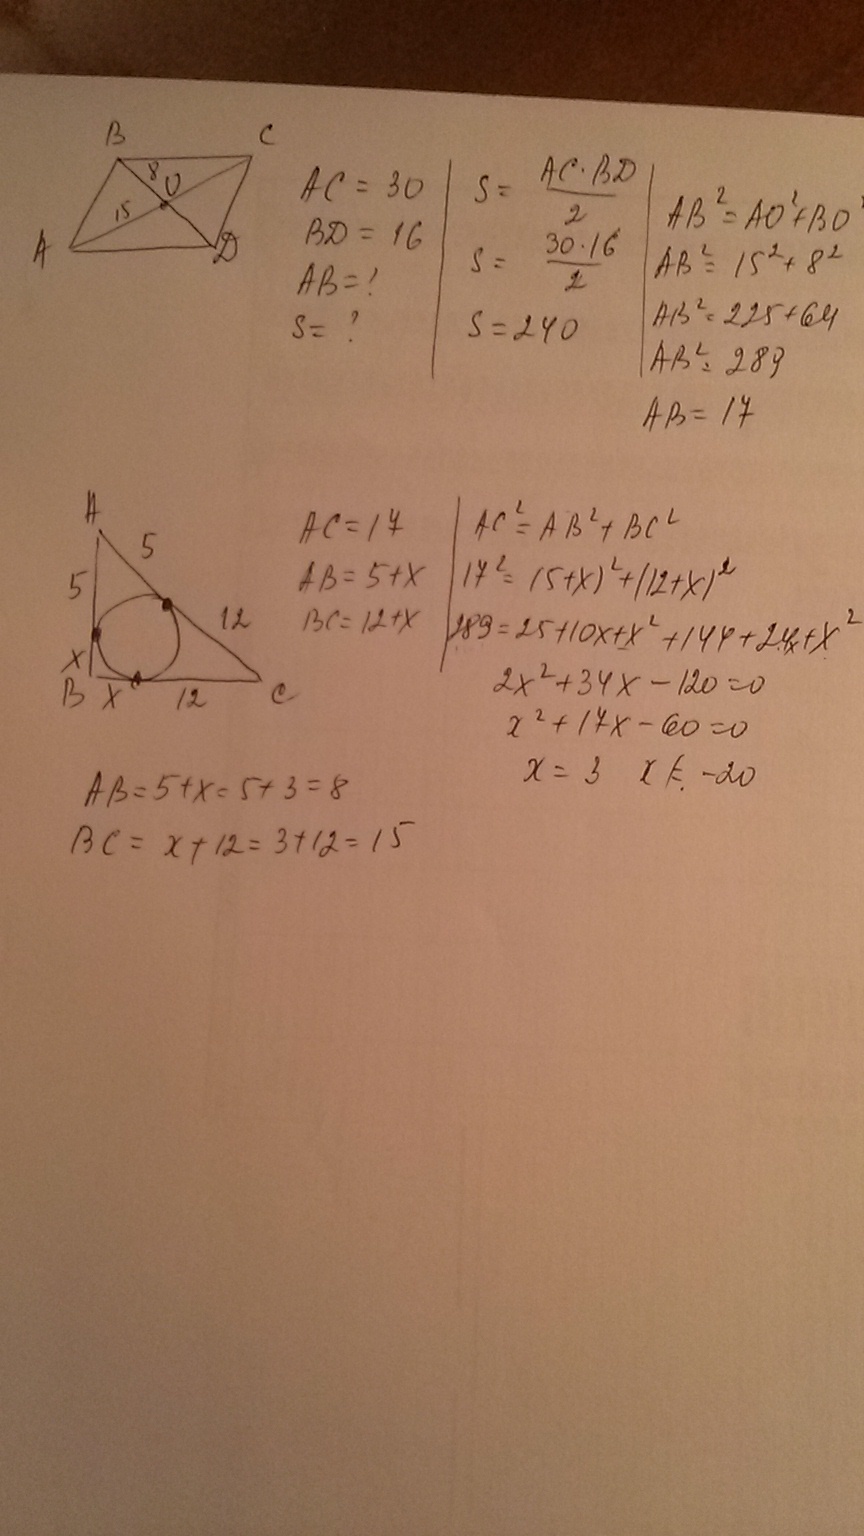 B C
8 O
15
A D
AC = 30
BD = 16
AB = ?
S = ?
S = AC · BD / 2
S = 30 · 16 / 2
S = 240
AB² = AO² + BO²
AB² = 15² + 8²
AB² = 225 + 64
AB² = 289
AB = 17
A
5
5
12
x
B x 12 C
AC = 17
AB = 5 + x
BC = 12 + x
AC² = AB² + BC²
17² = (5+x)² + (12+x)²
289 = 25 + 10x + x² + 144 + 24x + x²
2x² + 34x - 120 = 0
x² + 17x - 60 = 0
x = 3 x ≠ -20
AB = 5 + x = 5 + 3 = 8
BC = x + 12 = 3 + 12 = 15